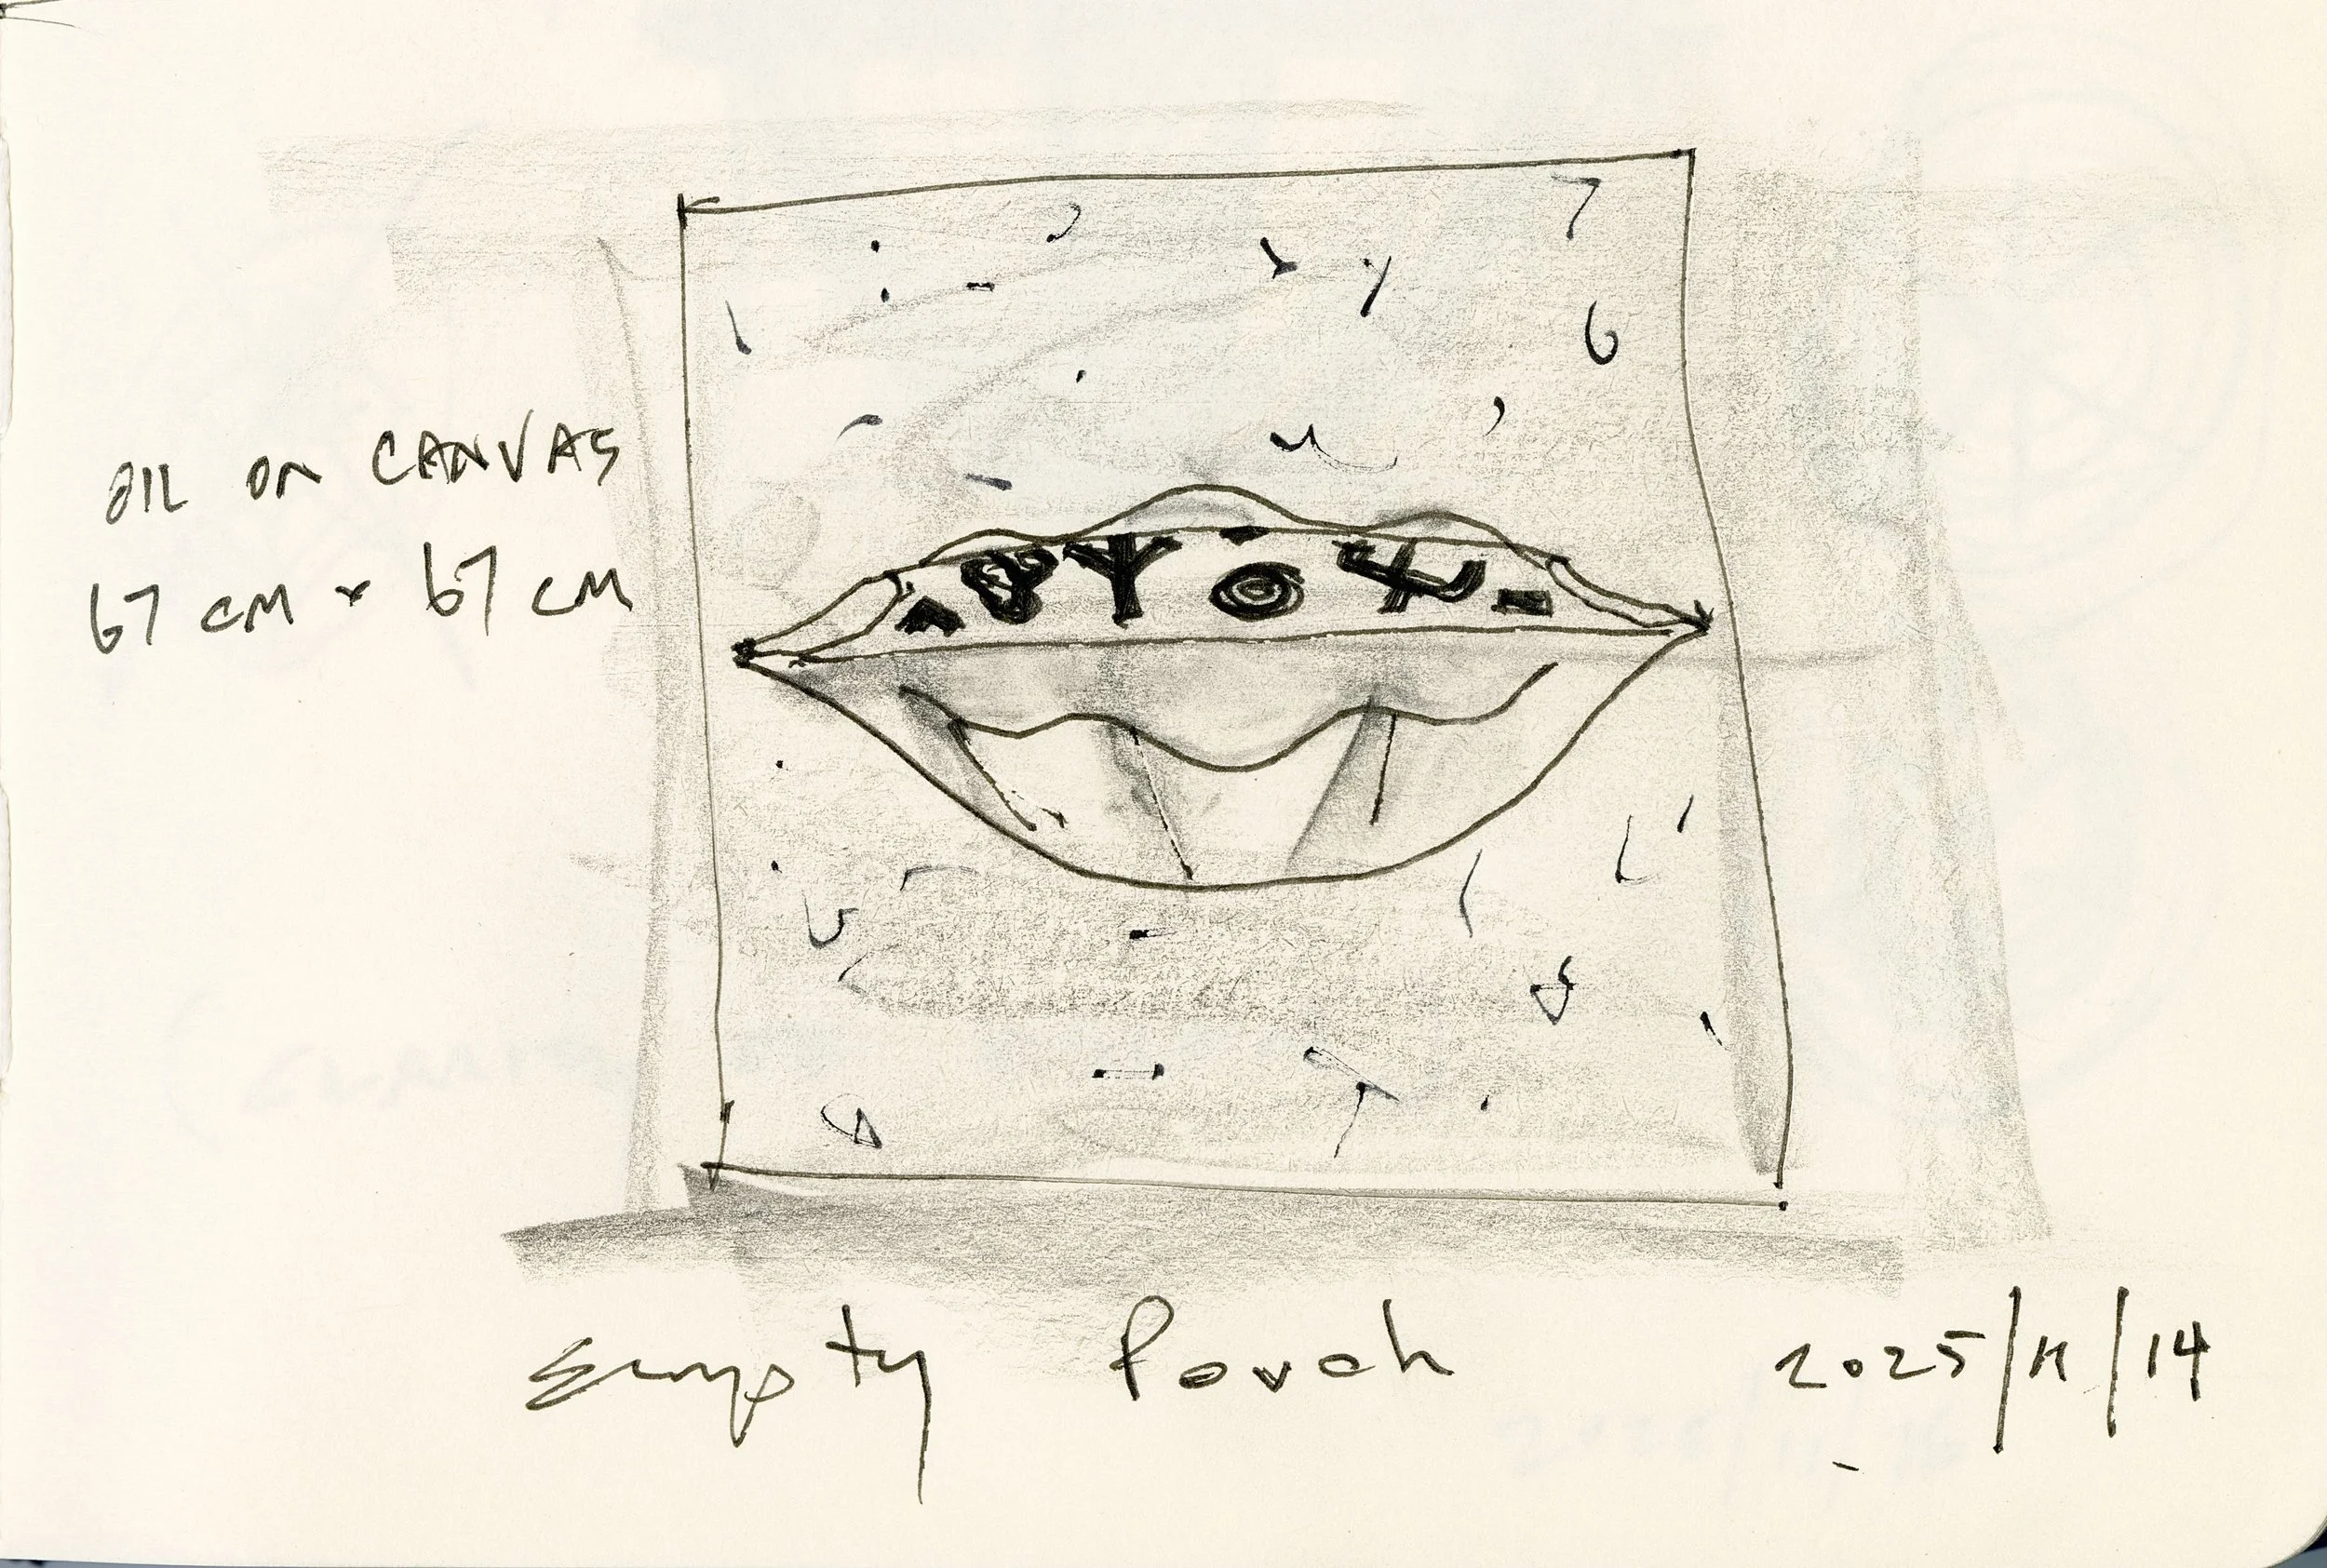 OIL ON CANVAS
67 CM x 67 CM
empty Pouch
2025/11/14